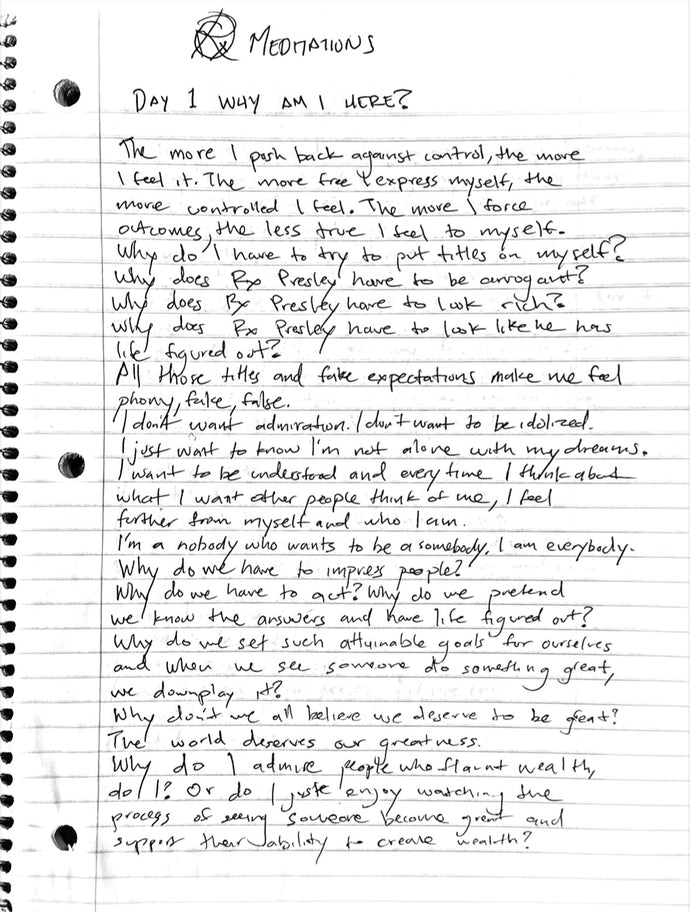 Rx MEDITATIONS
DAY 1 WHY AM I HERE?
The more I push back against control, the more
I feel it. The more free I express myself, the
more controlled I feel. The more I force
outcomes, the less true I feel to myself.
Why do I have to try to put titles on myself?
Why does Rx Presley have to be arrogant?
Why does Rx Presley have to look rich?
Why does Rx Presley have to look like he has
life figured out?
All those titles and fake expectations make me feel
phony, fake, false.
I don't want admiration. I don't want to be idolized.
I just want to know I'm not alone with my dreams.
I want to be understood and every time I think about
what I want other people think of me, I feel
further from myself and who I am.
I'm a nobody who wants to be a somebody. I am everybody.
Why do we have to impress people?
Why do we have to act? Why do we pretend
we know the answers and have life figured out?
Why do we set such attainable goals for ourselves
and when we see someone do something great,
we downplay it?
Why don't we all believe we deserve to be great?
The world deserves our greatness.
Why do I admire people who flaunt wealth,
do I? Or do I juste enjoy watching the
process of seeing someone become great and
support their ability to create wealth?